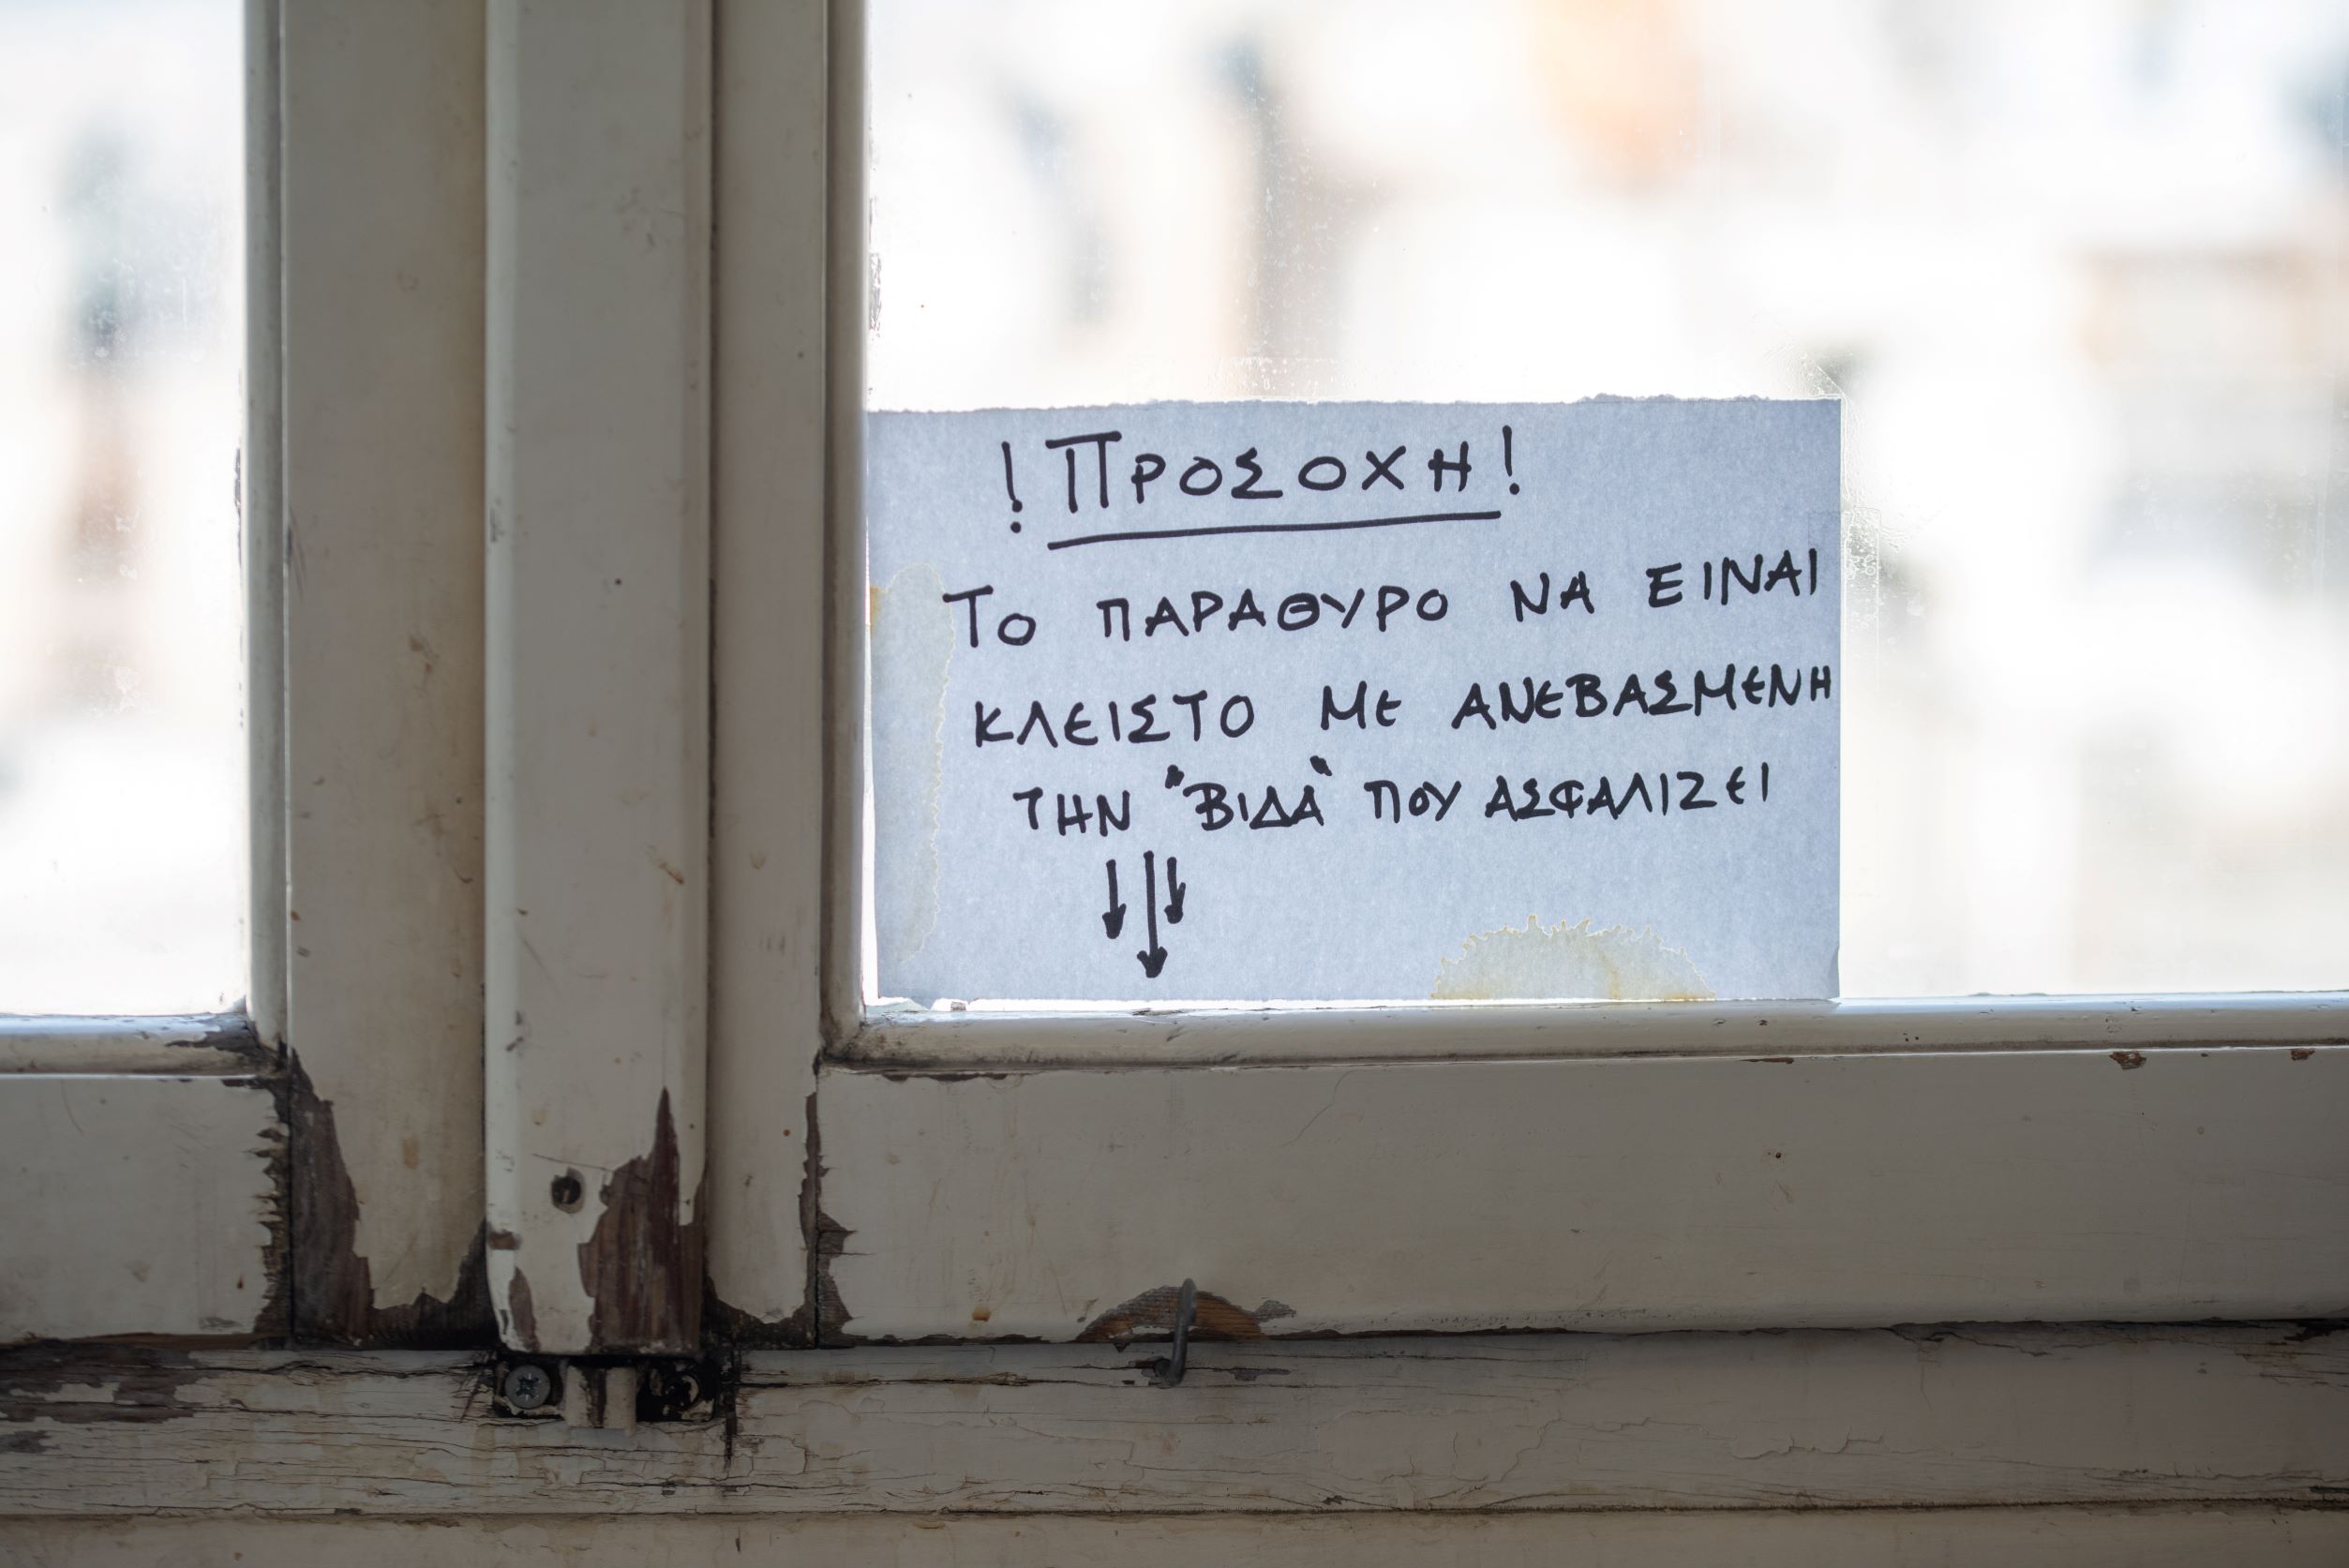 ! ΠΡΟΣΟΧΗ !
ΤΟ ΠΑΡΑΘΥΡΟ ΝΑ ΕΙΝΑΙ
ΚΛΕΙΣΤΟ ΜΕ ΑΝΕΒΑΣΜΕΝΗ
ΤΗΝ "ΒΙΔΑ" ΠΟΥ ΑΣΦΑΛΙΖΕΙ